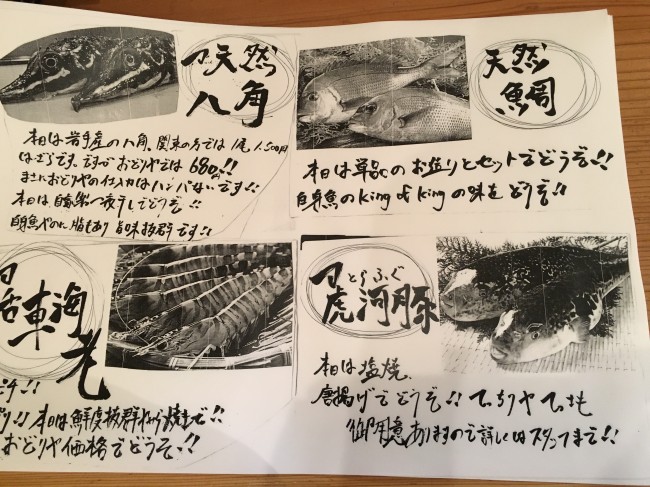 天然
八角
本日は岩手産の八角、関東の方では1尾1,500円
はざらです。ですがおどりやでは680円!!
まさにおどりやの仕入力はハンパないです!!
本日は自家製一夜干しでどうぞ!!
白身魚なのに脂もあり旨味抜群です!!
天然
鯛
本日は単品のお造りとセットでどうぞ!!
白身魚のKing of Kingの味をどうぞ!!
活車海
老
本日は鮮度抜群
おどりや価格でどうぞ!!
とらふぐ
虎河豚
本日は塩焼、
唐揚げでどうぞ!! てっちりやてっさも
御用意ありますので詳しくはスタッフまで!!